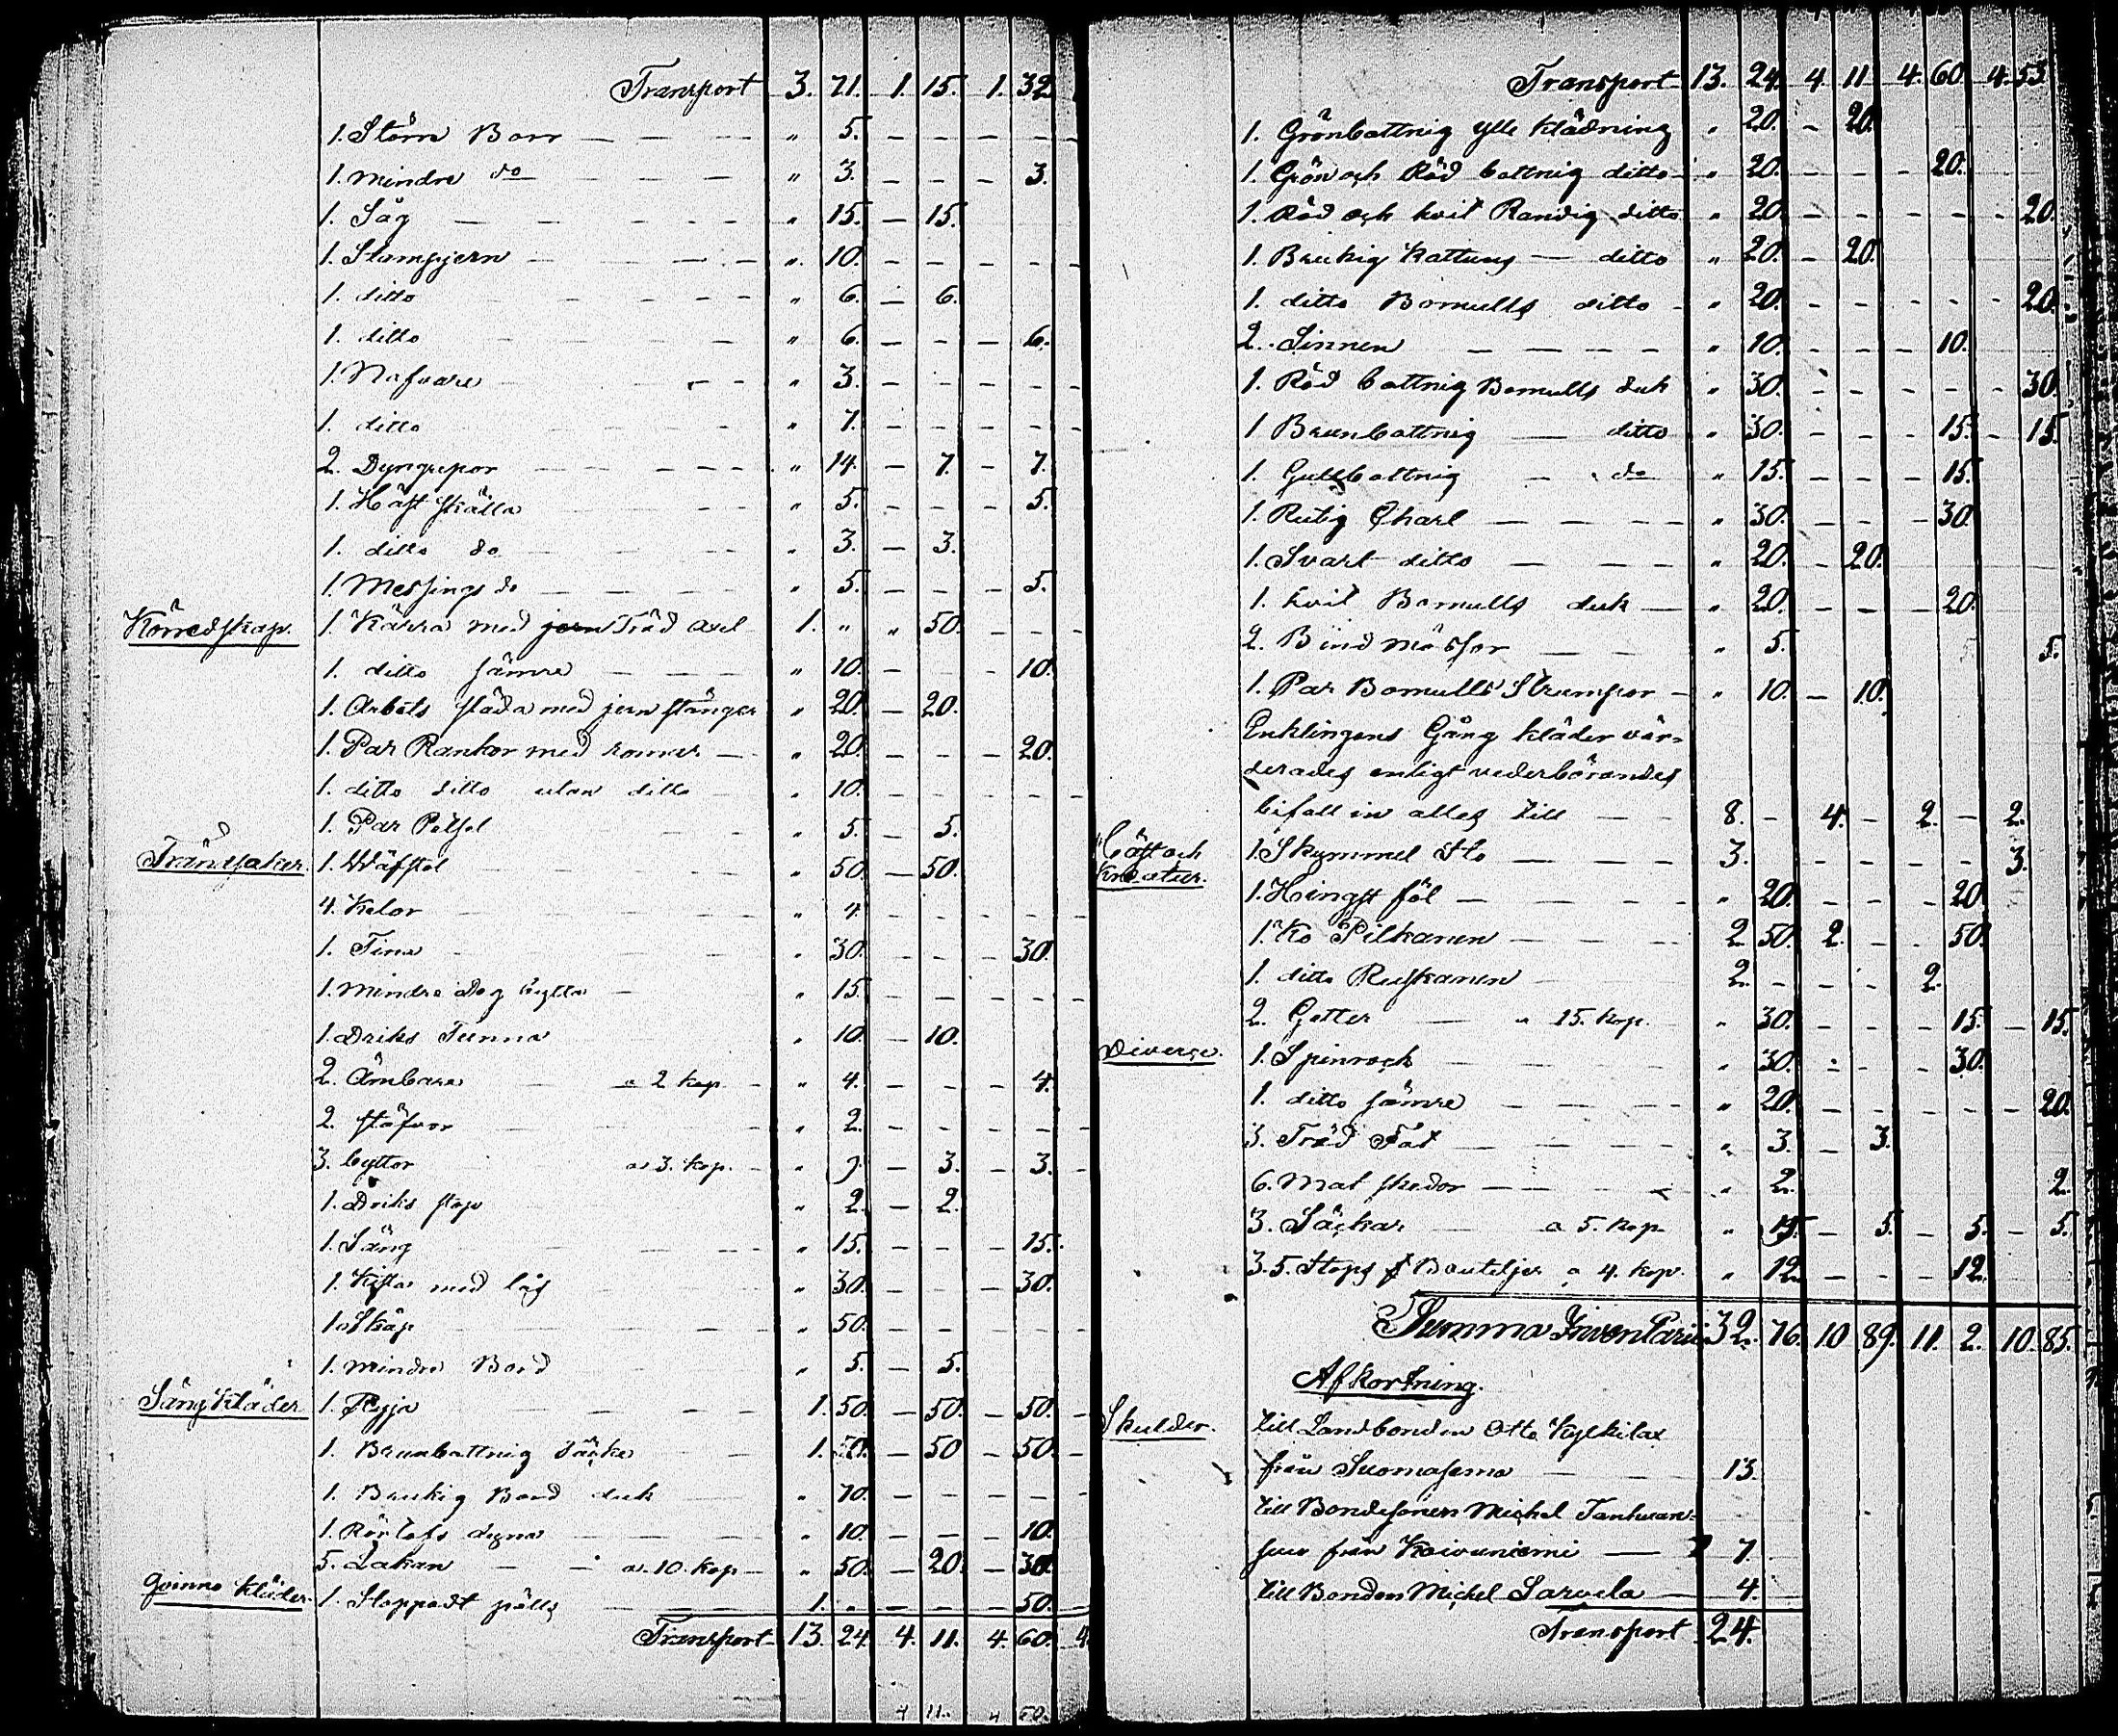 Transport 3. 71. 1. 15. 1. 32
1. Större Borr — — — " 5. - - - - -
1. mindre do — — — " 3. - - - 3.
1. Såg — — — " 15. - 15.
1. Stampjern — — — " 10. - - - - -
1. ditto — — — " 6. - 6.
1. ditto — — — " 6. - - - 6.
1. Nafvare — — " 3. - - - -
1. ditto " 7. - - - - -
2. Dyngrepor — — — " 14. - 7. - 7.
1. Häst skälla — — " 5. - - - 5.
1. ditto do — — " 3. - 3.
1. Messings do — — — " 5. - - - 5.
Köredskap. 1. Kärra med jern Träd axel 1. " " 50. - - -
1. ditto sämre — — — " 10. - - 10.
1. Arbets släda med jern stänger " 20. - 20.
1. Par Rankor med romar — " 20. - - - 20.
1. ditto ditto utan ditto " 10. - - - - -
1. Par " 5. - 5.
Trädsaker. 1. Wäfstol — — — " 50. - 50.
4. Kelor — — — " 4. - - - - -
1. Tina — — — " 30. - - - 30.
1. mindre Deg bytta — " 15. - - - - -
1. Driks Tunna — " 10. - 10.
2. Ämbare — a 2 kop. - " 4. - - - 4.
2. stäfvor — — — " 2. - - - - -
3. byttor a 3. kop. - " 9. - 3. - 3. -
1. Driks stop " 2. - 2.
1. Säng — — — " 15. - - - 15.
1. Kista med lås — — " 30. - - - 30.
1. Skåp — — — " 50. - - - - -
1. mindre Bord — " 5. - 5.
Sängkläder. 1. Ryja — — — 1. 50. - 50. - 50. -
1. Brunbattnig täcke — 1. 50. - 50 - 50. -
1. Brukig Bord duk — " 10. - - - - -
1. dyna — " 10. - - - 10.
5. Lakan — — a. 10. kop — " 50. - 20. - 30.
Qvinno kläder. 1. Stoppadt pälls — — 1. " - - - 50. -
Transport 13 24. 4. 11. 4. 60. 4
4 11. 4 60.
Transport 13. 24. 4 11 4. 60. 4. 53.
1. Grönbattnig ylle klädning " 20. - 20.
1. Grön och Röd battnig ditto " 20. - - - 20.
1. Röd och hvit Randig ditto " 20. - - - - - 20.
1. Brukig Kattuns — ditto " 20. - 20.
1. ditto Bomulls ditto " 20. - - - - - 20.
2. Linnen — — — " 10. - - - 10.
1. Röd battnig Bomulls duk " 30. - - - - - 30.
1 Brunbattnig — ditto " 30. - - - 15. - 15.
1. Gullbattnig — do " 15. - - - 15.
1. Rutig Sharl — — — " 30. - - - 30.
1. Svart ditto — — — " 20. - 20.
1. hvit Bomulls duk — " 20. - - - 20.
2. Bind mössor — — " 5. 5.
1. Par Bomulls Strumpor — " 10. - 10.
Enklingens Gång kläder vär-
derades enligt vederbörandes
bifall in alles till — — 8. - 4. - 2. - 2.
Häst och 1. Skymmel Sto — — — 3. - - - - - 3.
Kreatur. 1. Hingst föl — — — " 20. - - - 20.
1. Ko Pilkanen — — — 2 50. 2. - - 50.
1. ditto Ruskanen 2. - - - 2.
2. Getter — a 15. kop. " 30. - - - 15. - 15.
Diverse. 1. Spinrock — " 30. - - - 30.
1. ditto sämre — — — " 20. - - - - - 20.
3. Träd Fat — — — " 3. - 3.
6. Mat skedor — — — " 2. 2.
3. Säckar — a 5. kop " 15. - 5. - 5. - 5.
3. 5. Stops Bouteljer a 4. kop. " 12. - - - 12.
Summa Inventarii 32. 76. 10. 89. 11. 2. 10. 85.
Afkortning.
Skulder. till Landbonden Otto Kylkilax
från Suomasema — 13.
till Bondesonen Michel Tanhuan-
suu från Koivuniemi — 7.
till Bonden Michel Sarvela — 4.
Transport 24.